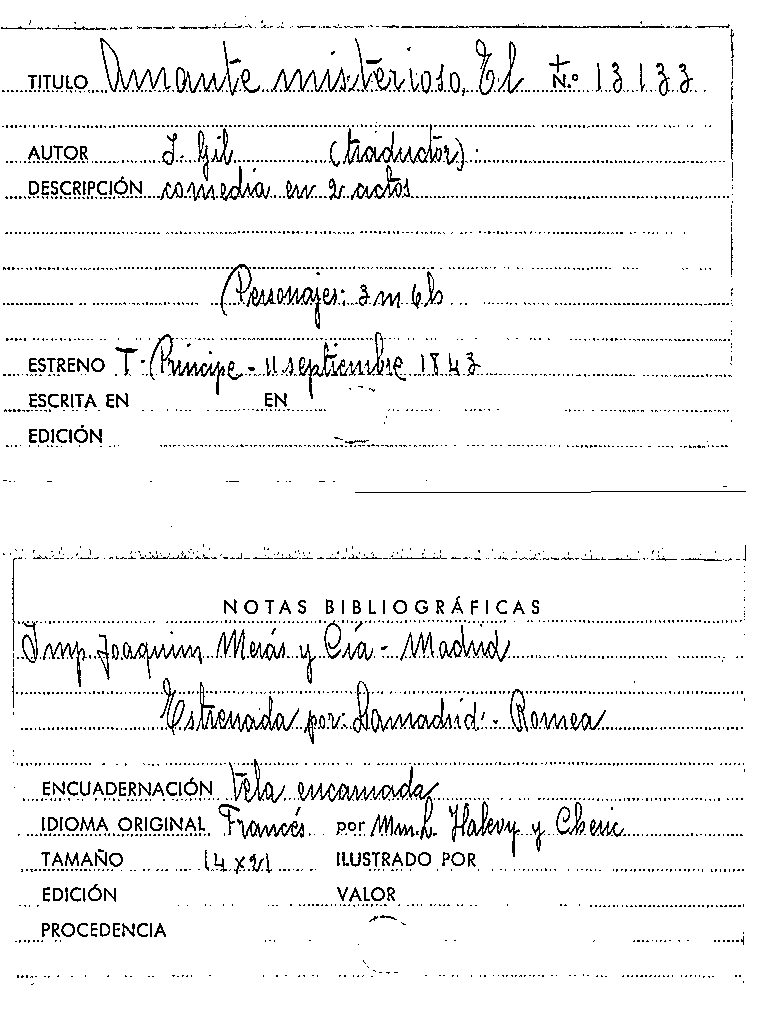 TITULO Amante misterioso, El N.º 13133
AUTOR I. Gil (traductor):
DESCRIPCIÓN comedia en 2 actos
Personajes: 3 m 6 h
ESTRENO T. Príncipe - 11 septiembre 1843
ESCRITA EN EN
EDICIÓN
NOTAS BIBLIOGRÁFICAS
Imp. Joaquim Merás y Cía - Madrid
Estrenada por: Lamadrid - Romea
ENCUADERNACIÓN tela encarnada
IDIOMA ORIGINAL Francés por Mm. L. Halevy y
TAMAÑO 14 x 21 ILUSTRADO POR
EDICIÓN VALOR
PROCEDENCIA